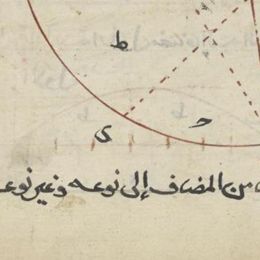 ط
ى
من المضاف إلى نوعه وغير نوعه